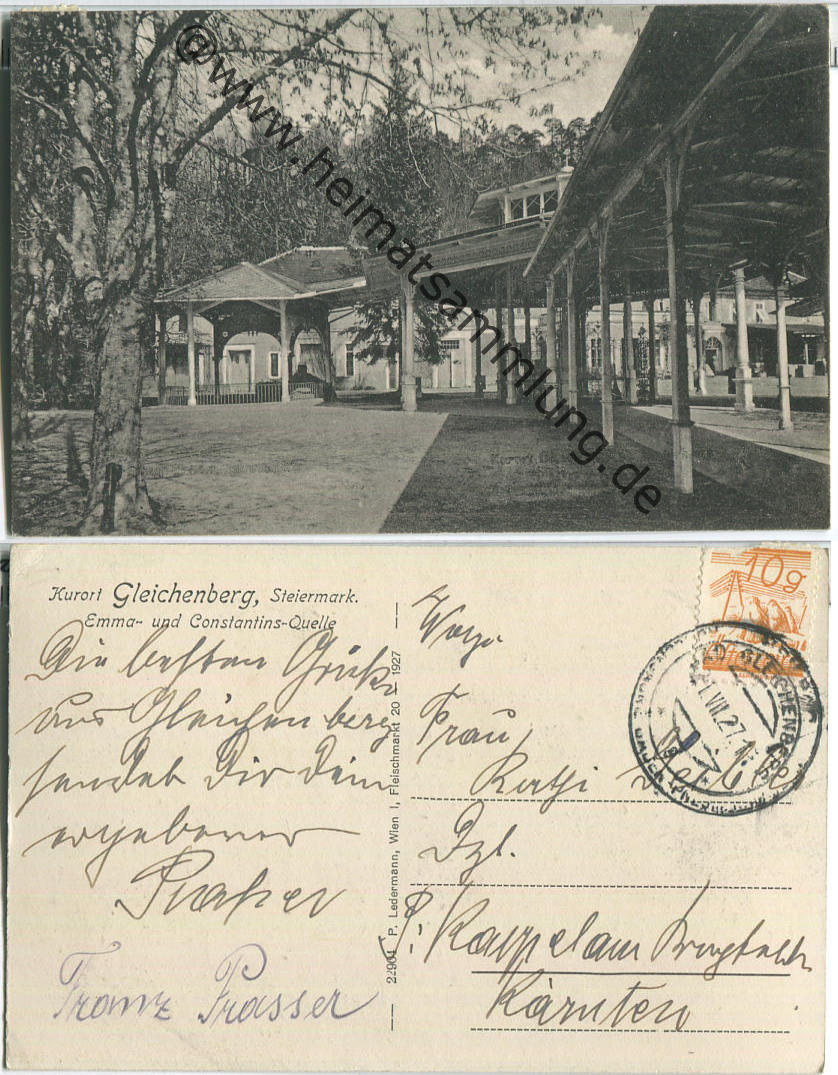 © www.heimatsammlung.de
Kurort Gleichenberg, Steiermark.
Emma- und Constantins-Quelle
Die besten Grüße
aus Gleichenberg
sendet Dir Dein
ergebener
Franz Prasser
22904 P. Ledermann, Wien I, Fleischmarkt 20 – 1927
10g
GLEICHENBERG
VII.27
Frau
Kathi
Kappel am Krappfelde
Kärnten